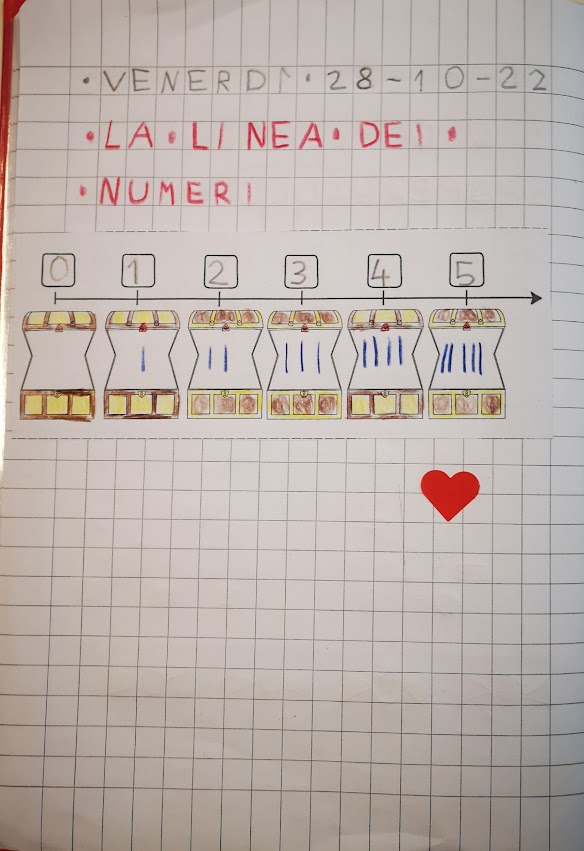 •VENERDÌ•28-10-22
•LA•LINEA•DEI•
•NUMERI
0 1 2 3 4 5